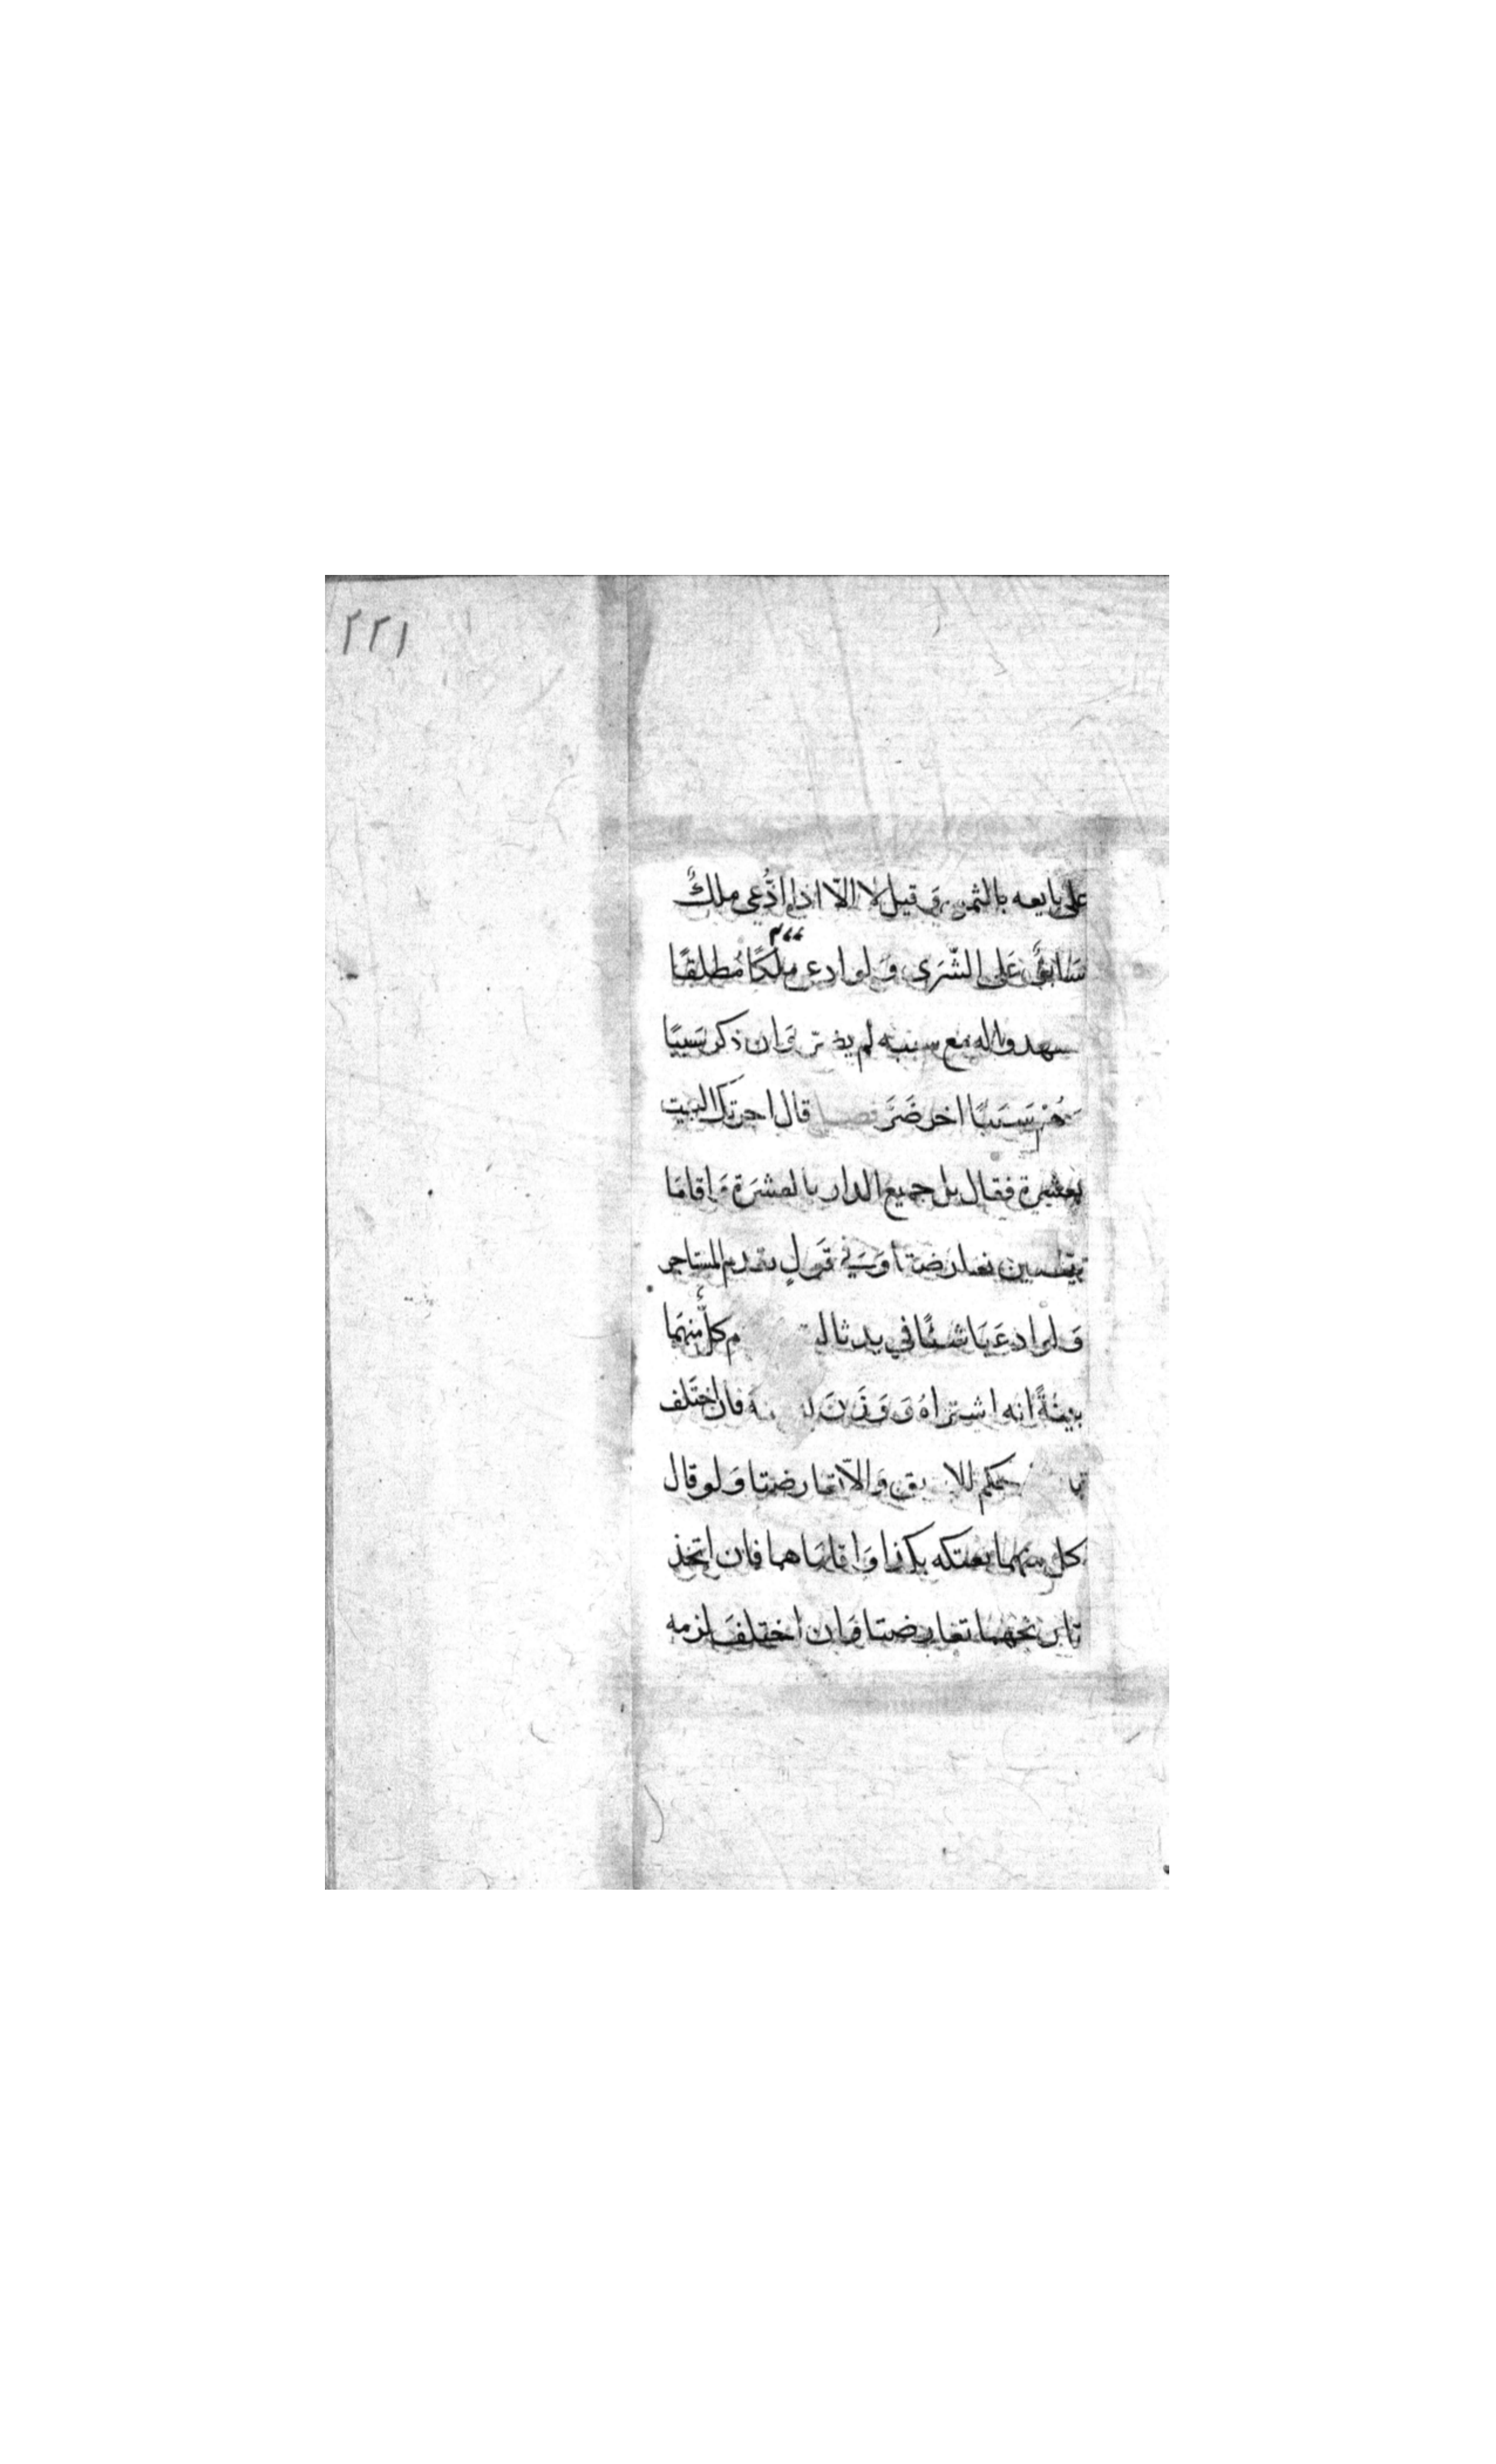 ٢٢١
على بايعه بالثمن وقيل لا الا اذا ادعى ملك
سابق على الشرى ولو ادعى ملكا مطلقا
سهدوا له مع سببه لم يضر وان ذكر سببا
وهم سببا اخر ضر فصل قال اجرتك البيت
بعشرة فقال بل جميع الدار بالعشرة واقاما
بينتين تعارضتا وفي قول يقدم المستاجر
ولو ادعيا شئا في يد ثالث كل منهما
بينة انه اشتراه ووزن له فان اختلف
حكم للاسبق والا تعارضتا ولو قال
كل منهما بعتكه بكذا واقاماهما فان اتخذ
تاريخهما تعارضتا وان اختلف لزمه